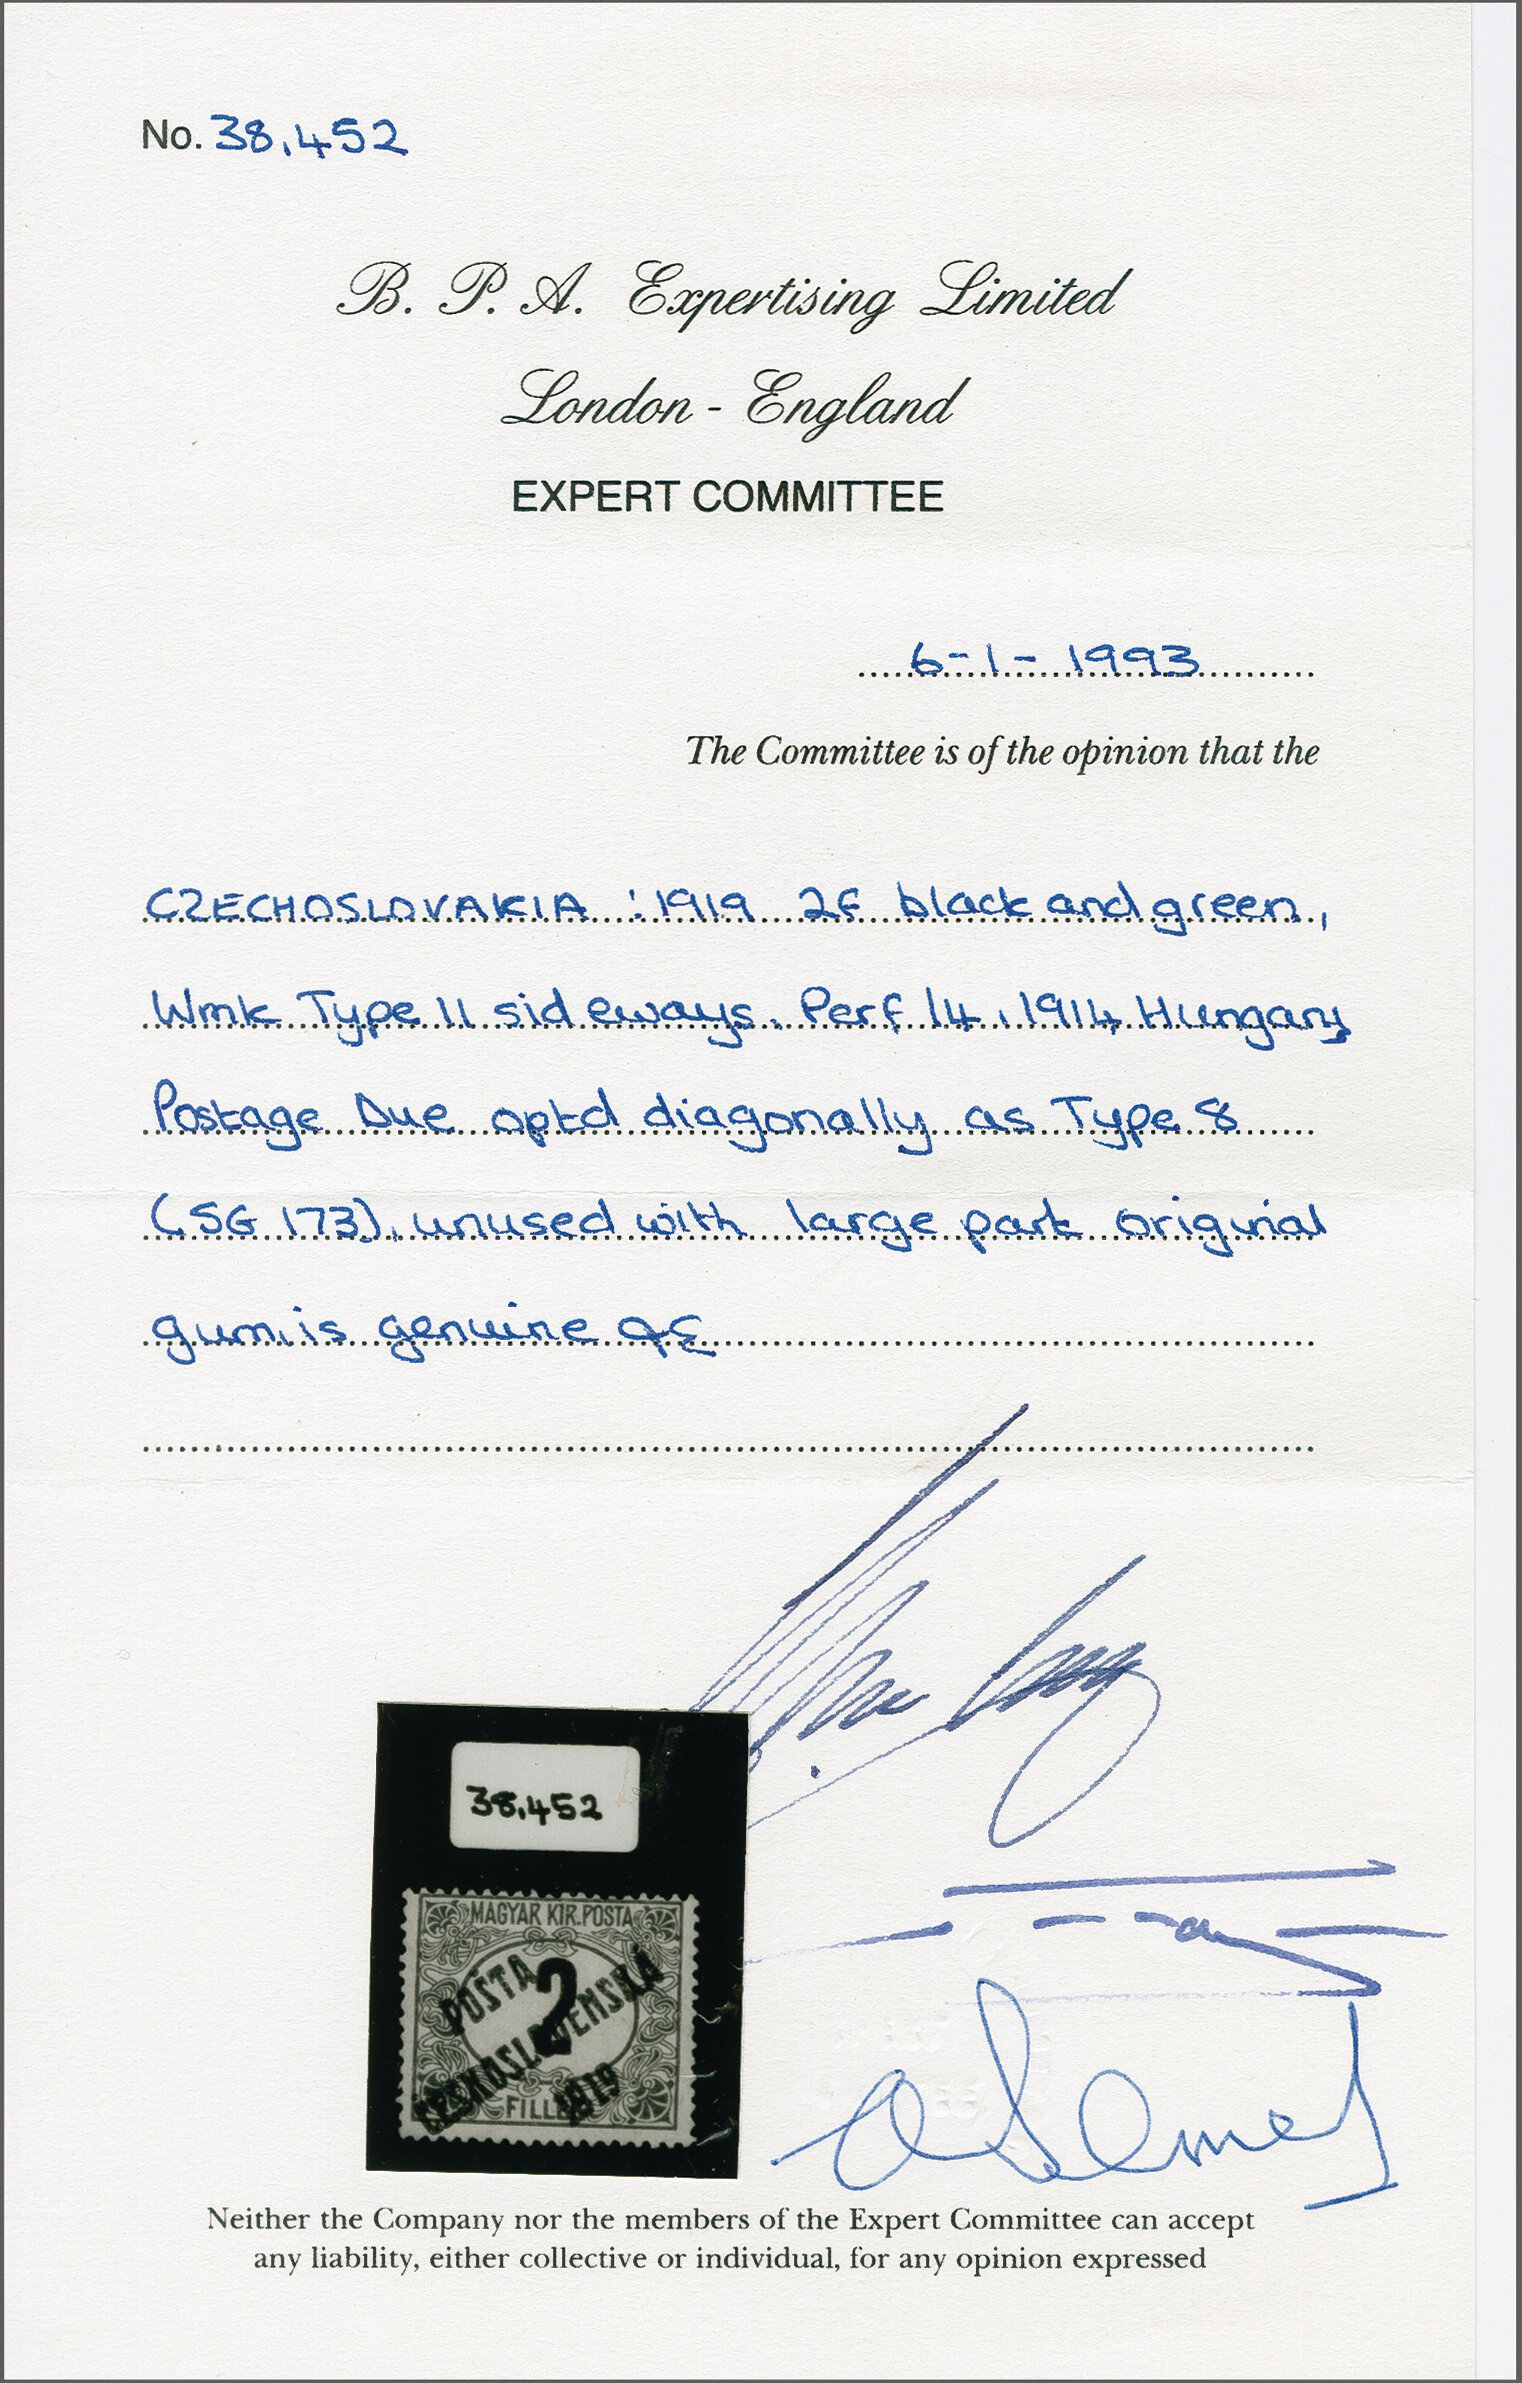 No. 38,452
B. P. A. Expertising Limited
London - England
EXPERT COMMITTEE
6-1-1993
The Committee is of the opinion that the
CZECHOSLOVAKIA : 1919 2F black and green,
Wmk Type 11 sideways. Perf 14, 1914 Hungary
Postage Due optd diagonally as Type 8
(SG 173), unused with large part original
gum, is genuine
38,452
MAGYAR KIR. POSTA
POŠTA
2
ČESKOSLOVENSKÁ
1919
FILLÉR
Neither the Company nor the members of the Expert Committee can accept
any liability, either collective or individual, for any opinion expressed